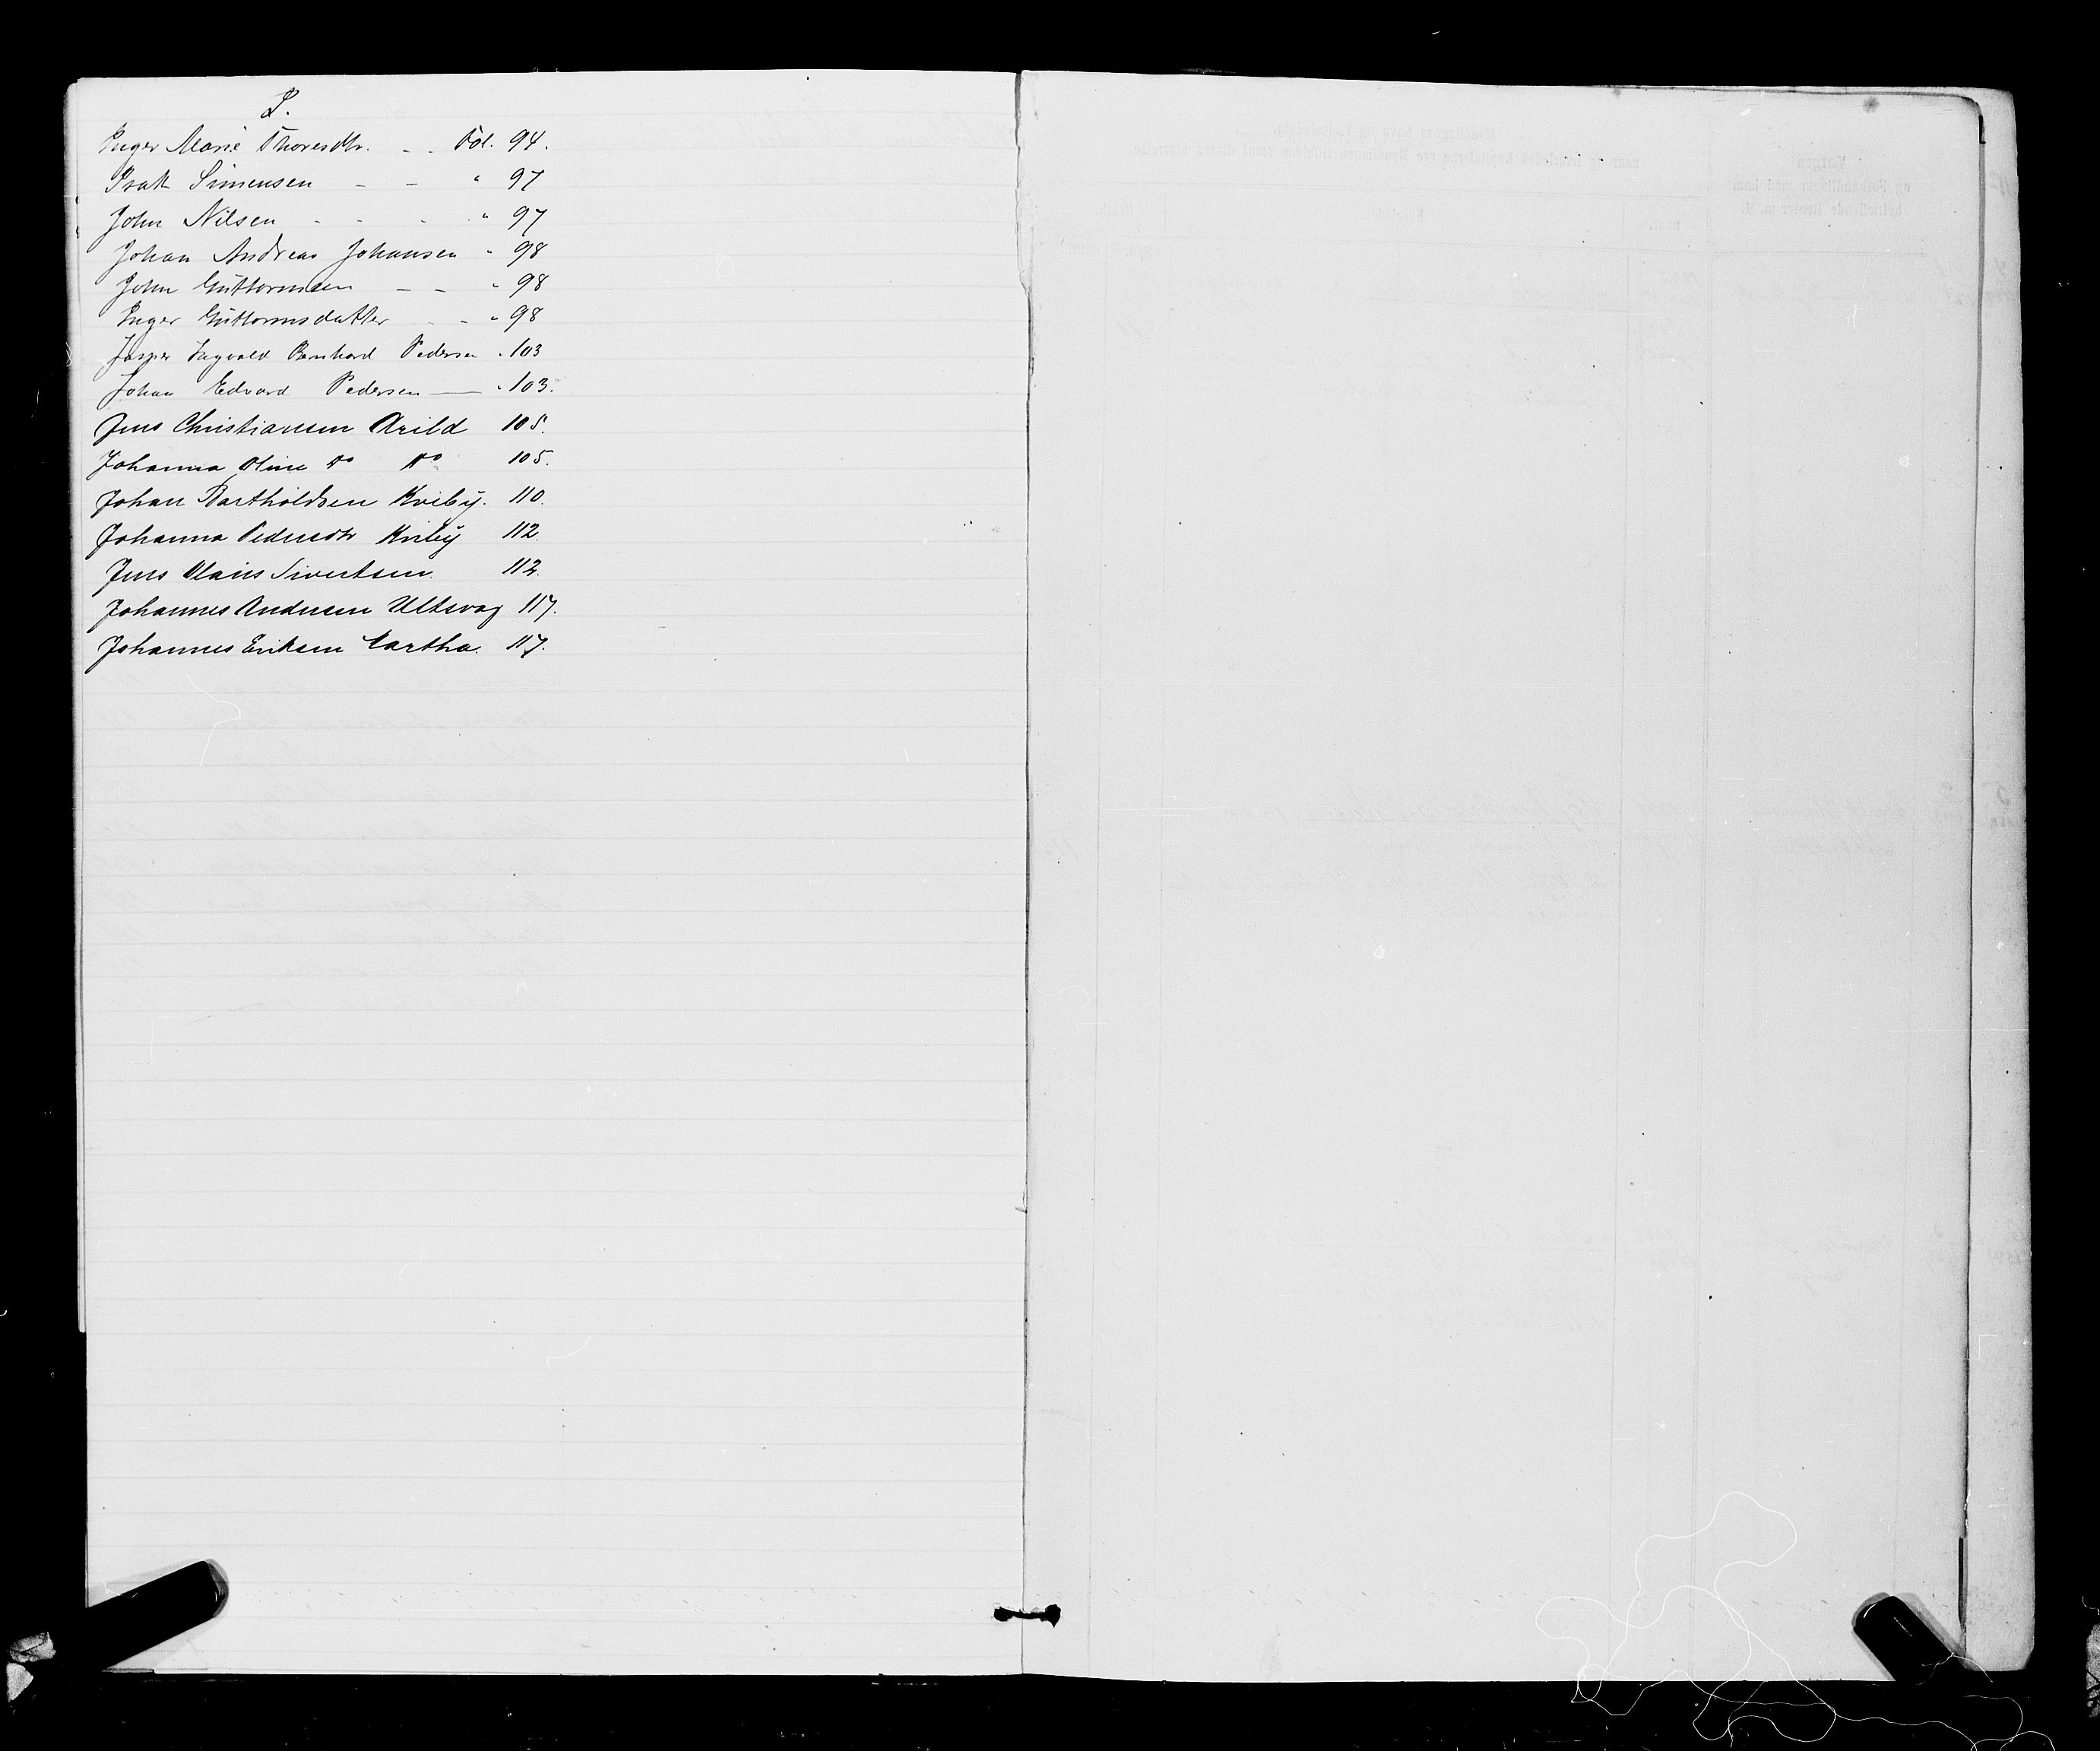 I.
Inger Marie Thoresdtr. - - Fol. 94.
Isak Simensen - - " 97
John Nilsen - - - " 97
Johan Andreas Johansen " 98
John Guttormsen - - " 98
Inger Guttormsdatter - - " 98
Jasper Ingvald Bernhard Pedersen " 103
Johan Edvard Pedersen — " 103.
Jens Christiansen Arild 105.
Johanna Oline Do Do 105.
Johan Bartholdsen Kviby. 110.
Johanna Pedersdtr Kviby 112.
Jens Olaus Sivertsen. 112.
Johannes Andersen Ultsvag 117.
Johannes Eriksen 117.